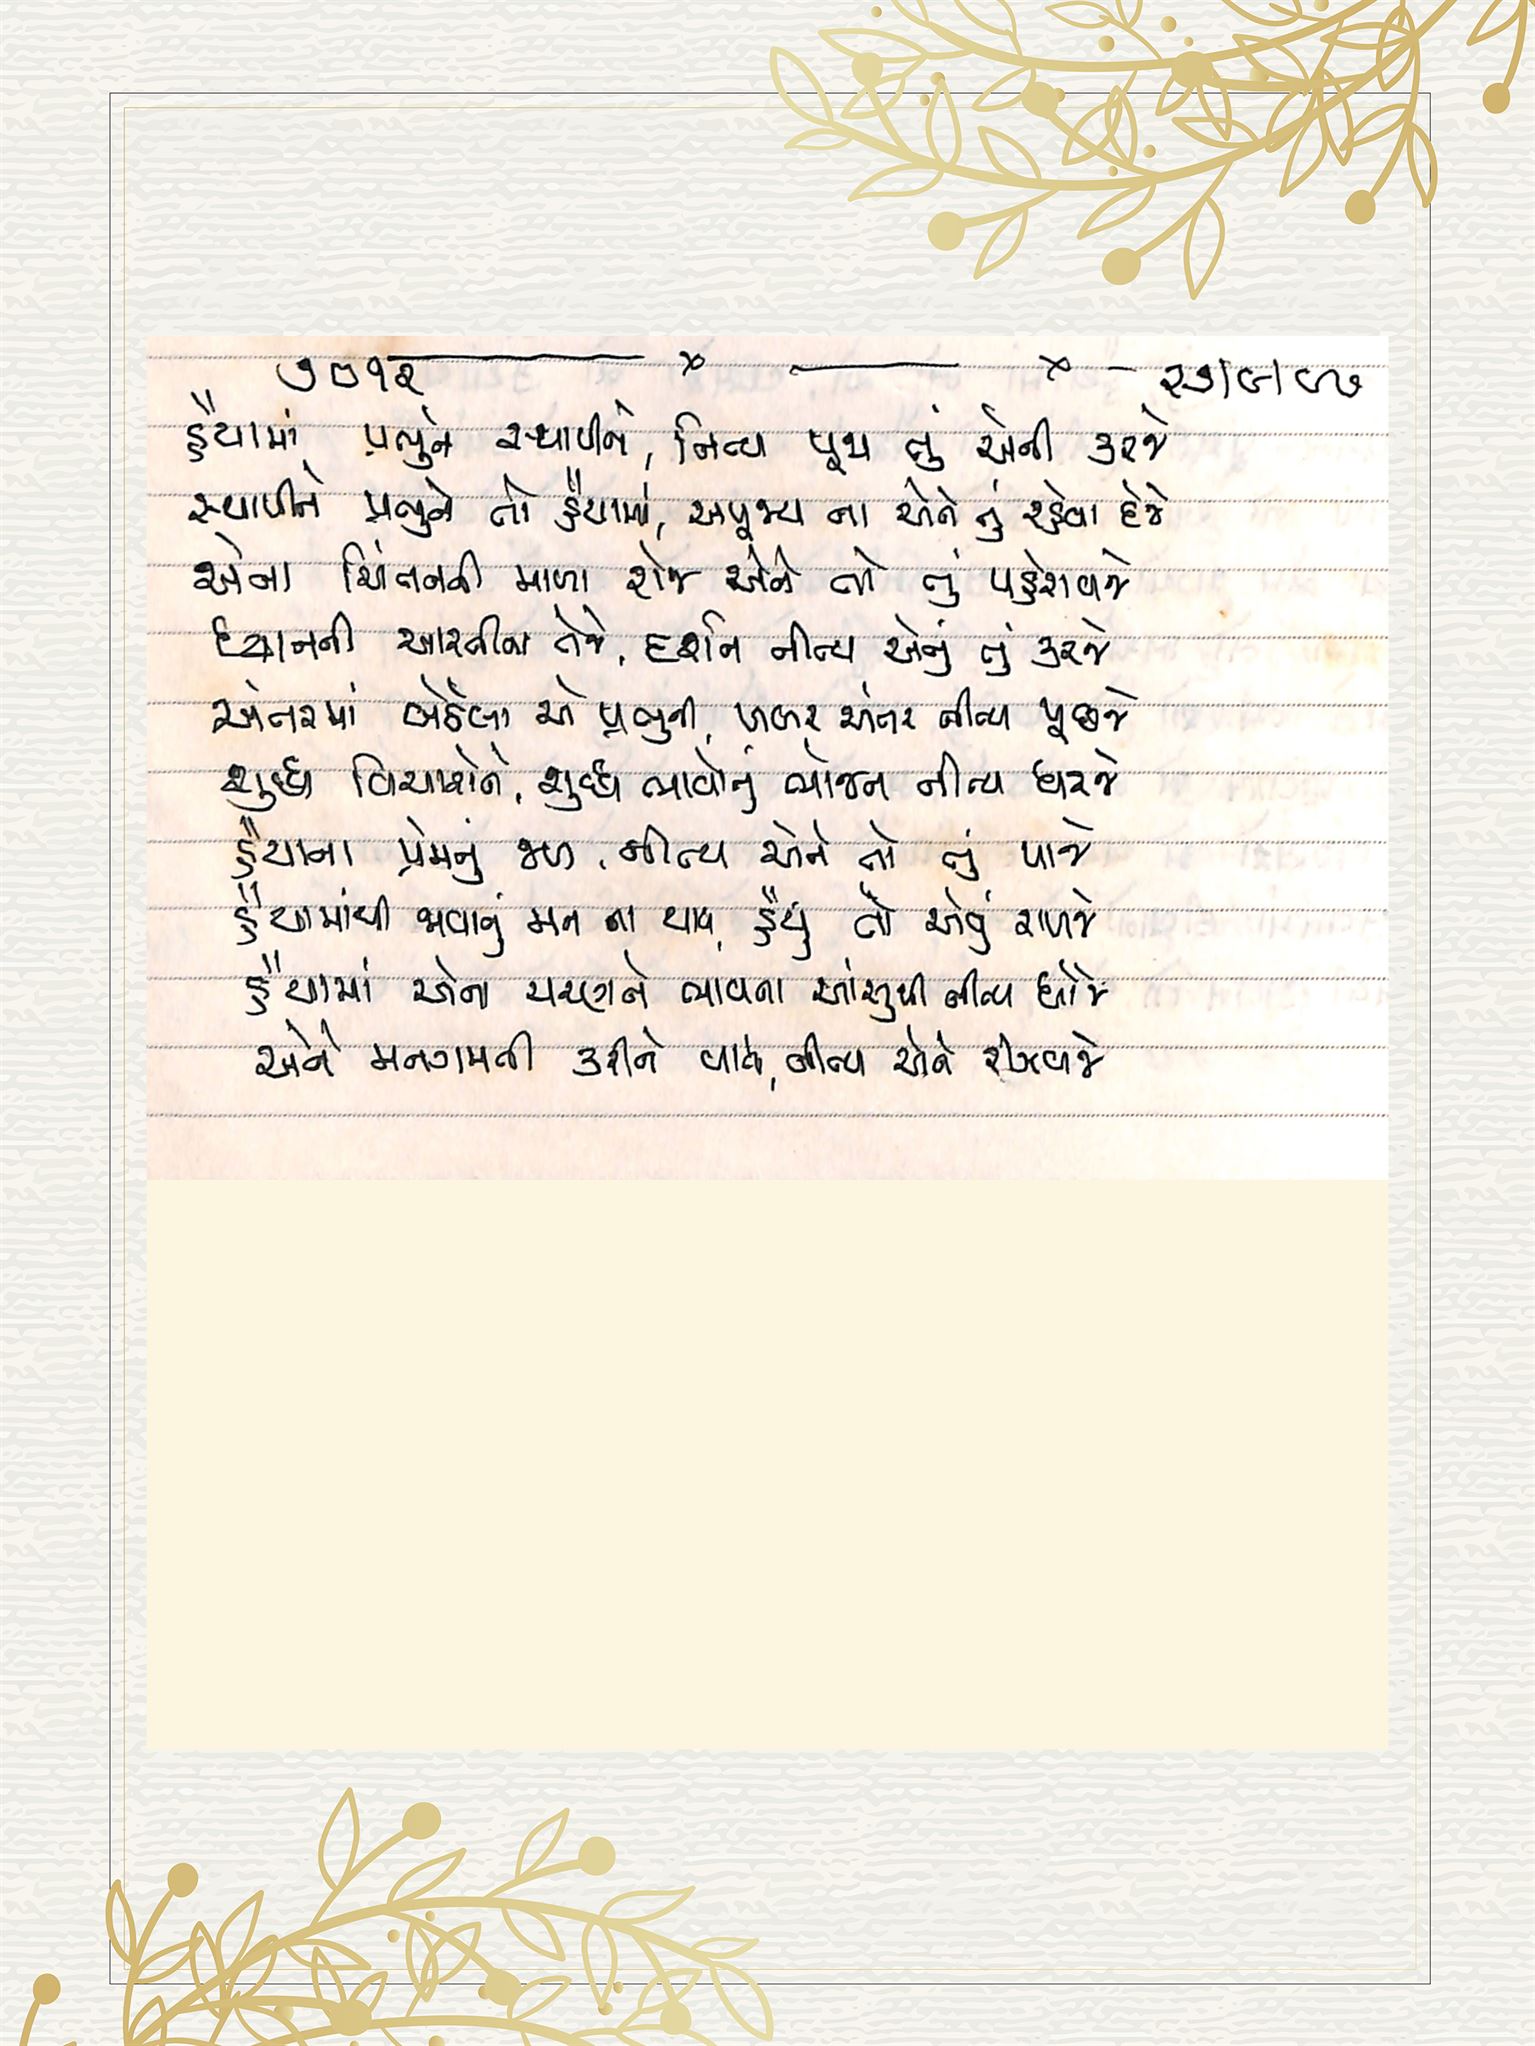 ૭૦૧૨ x x ૨૭/૭/૯૭
હૈયામાં પ્રભુને સ્થાપીને, નિત્ય પૂજા તું એની કરજે
સ્થાપીને પ્રભુને તો હૈયામાં, અપૂજ્ય ના એને તું રહેવા દેજે
એના ચિંતનની માળા રોજ એને તો તું પહેરાવજે
ધ્યાનની આરતીના તેજે, દર્શન નીત્ય એનું તું કરજે
અંતરમાં બેઠેલા એ પ્રભુની, ખબર અંતર નીત્ય પૂછજે
શુદ્ધ વિચારોને, શુદ્ધ ભાવોનું ભોજન નીત્ય ધરજે
હૈયાના પ્રેમનું જળ, નીત્ય એને તો તું પાજે
હૈયામાંથી જવાનું મન ના થાય, હૈયું તો એવું રાખજે
હૈયામાં એના ચરણને ભાવના આંસુથી નીત્ય ધોજે
એને મનગમતી કરીને વાત, નીત્ય એને રીઝવજે